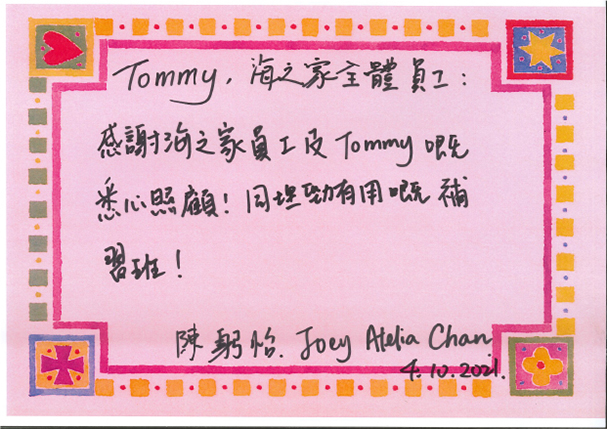 Tommy, 海之家主體員工:
感謝海之家員工及Tommy嘅
悉心照顧! 同埋勁有用嘅補
習班!
陳躬怡. Joey Atelia Chan
4.10.2021.